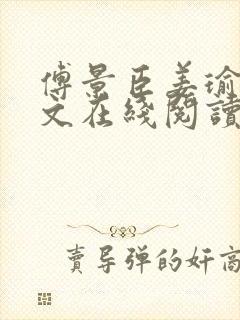 傅景臣姜瑜
文在綫閱讀
賣导弹的奸商